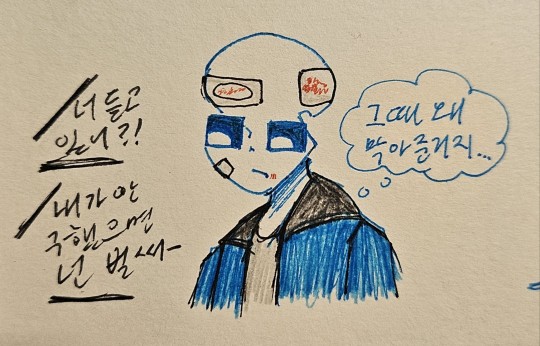 너 듣고
있니?!
내가 안
구했으면
넌 벌써-
그때 왜
막아준거지...